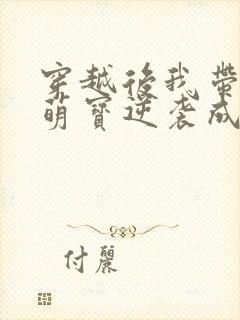 穿越後我帶
萌寶逆袭成
付麗